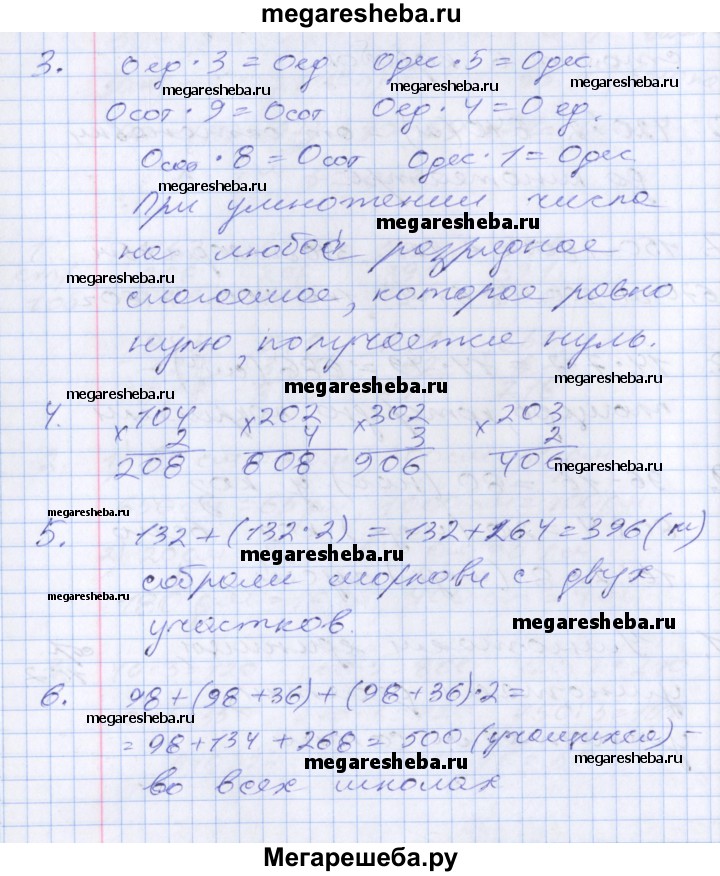 megaresheba.ru
3. 0 ед · 3 = 0 ед 0 дес · 5 = 0 дес
megaresheba.ru megaresheba.ru
0 сот · 9 = 0 сот 0 ед · 4 = 0 ед.
0 сот · 8 = 0 сот 0 дес · 1 = 0 дес
megaresheba.ru
При умножении числа
megaresheba.ru
на любое разрядное
megaresheba.ru
слагаемое, которое равно
нулю, получается нуль.
megaresheba.ru megaresheba.ru
megaresheba.ru
4. × 104 × 202 × 302 × 203
2 4 3 2
208 808 906 406
megaresheba.ru
megaresheba.ru
5. 132 + (132 · 2) = 132 + 264 = 396 (кг)
megaresheba.ru
собрали моркови с двух
megaresheba.ru megaresheba.ru
участков.
megaresheba.ru
6. 98 + (98 + 36) + (98 + 36) · 2 =
megaresheba.ru
= 98 + 134 + 268 = 500 (учащихся) –
megaresheba.ru megaresheba.ru
во всех школах
Мегарешеба.ру